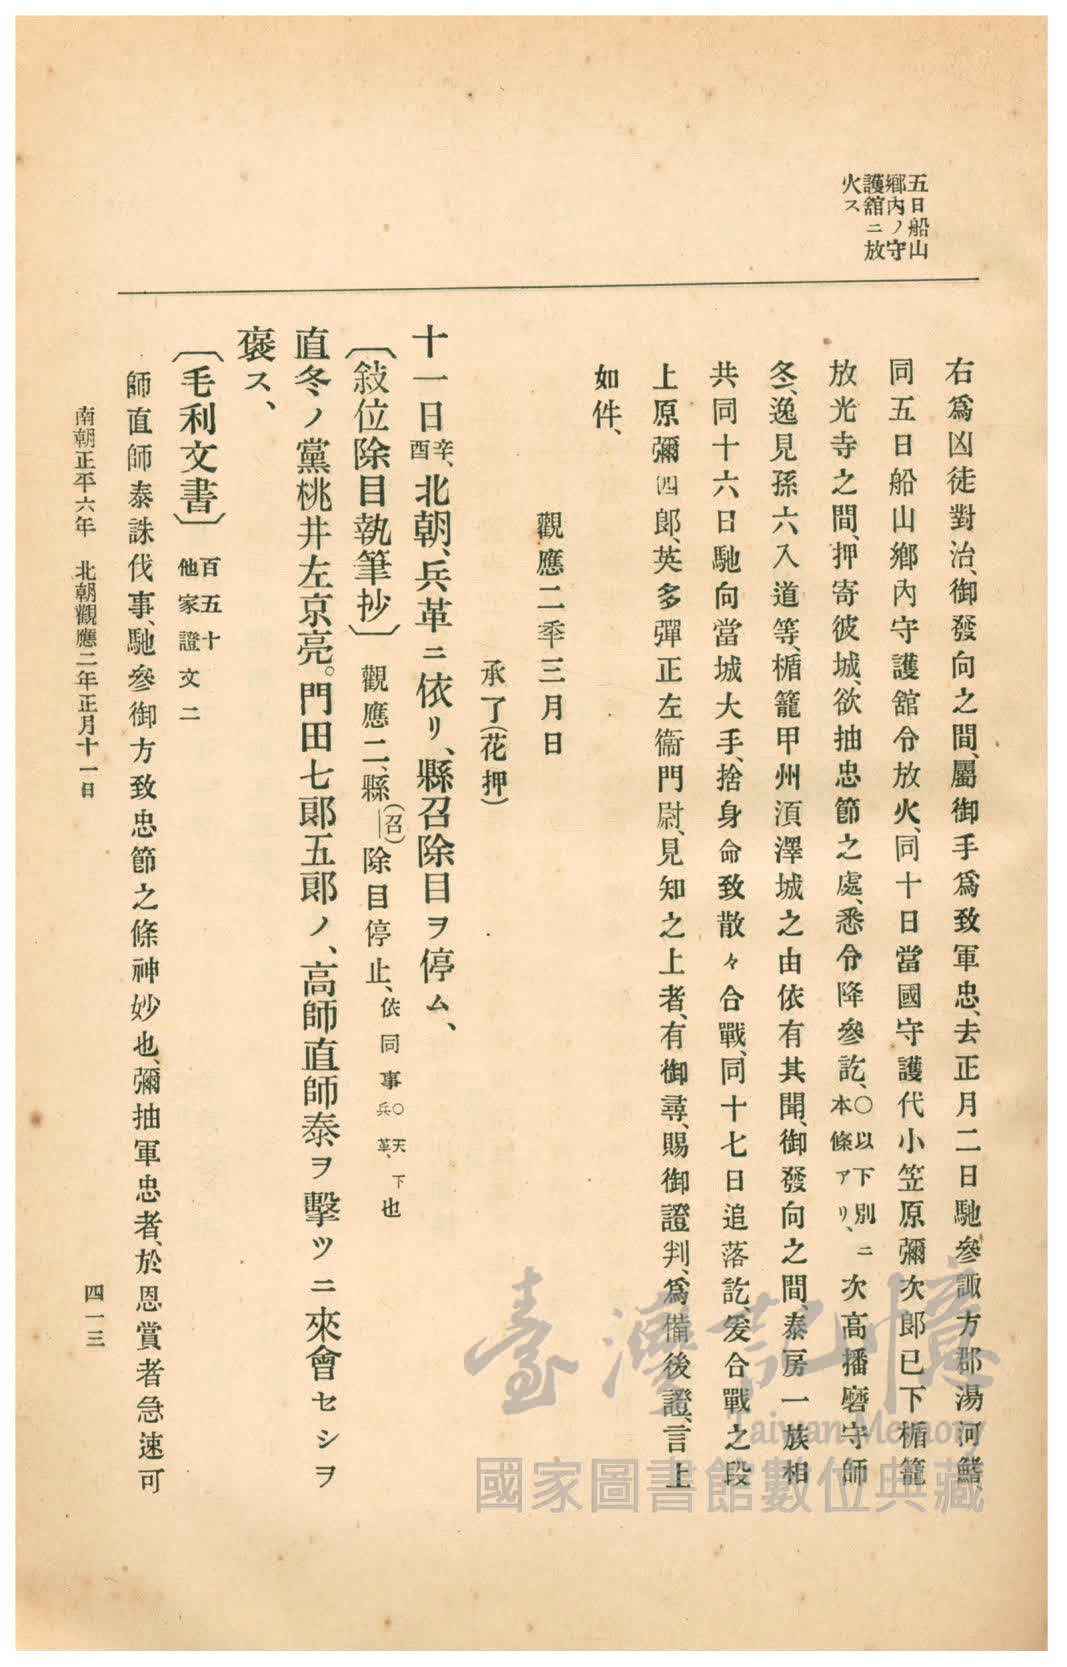 五日船山
鄕内ノ守
護舘ニ放
火ス
右爲凶徒對治、御發向之間、屬御手爲致軍忠、去正月二日馳參諏方郡湯河鰭、
同五日船山鄕内守護舘令放火、同十日當國守護代小笠原彌次郎已下楯籠
放光寺之間、押寄彼城、欲抽忠節之處、悉令降參訖、○以下別ニ本條アリ、次高播磨守師
冬、逸見孫六入道等、楯籠甲州湏澤城之由依有其聞、御發向之間、泰房一族相
共同十六日馳向當城大手、捨身命致散々合戰、同十七日追落訖、爰合戰之段
上原彌四郎、英多彈正左衞門尉、見知之上者、有御尋、賜御證判、爲備後證、言上
如件、
觀應二秊三月日
承了(花押)
十一日、辛酉北朝、兵革ニ依リ、縣召除目ヲ停ム、
〔敍位除目執筆抄〕觀應二、縣(召)―除目停止、依同事○天下兵革、也
直冬ノ黨桃井左京亮。門田七郎五郎ノ、高師直師泰ヲ擊ツニ來會セシヲ
褒ス、
〔毛利文書〕百五十他家證文二
師直師泰誅伐事、馳參御方致忠節之條神妙也、彌抽軍忠者、於恩賞者急速可
南朝正平六年 北朝觀應二年正月十一日
四一三
臺灣記憶
Taiwan Memory
國家圖書館數位典藏